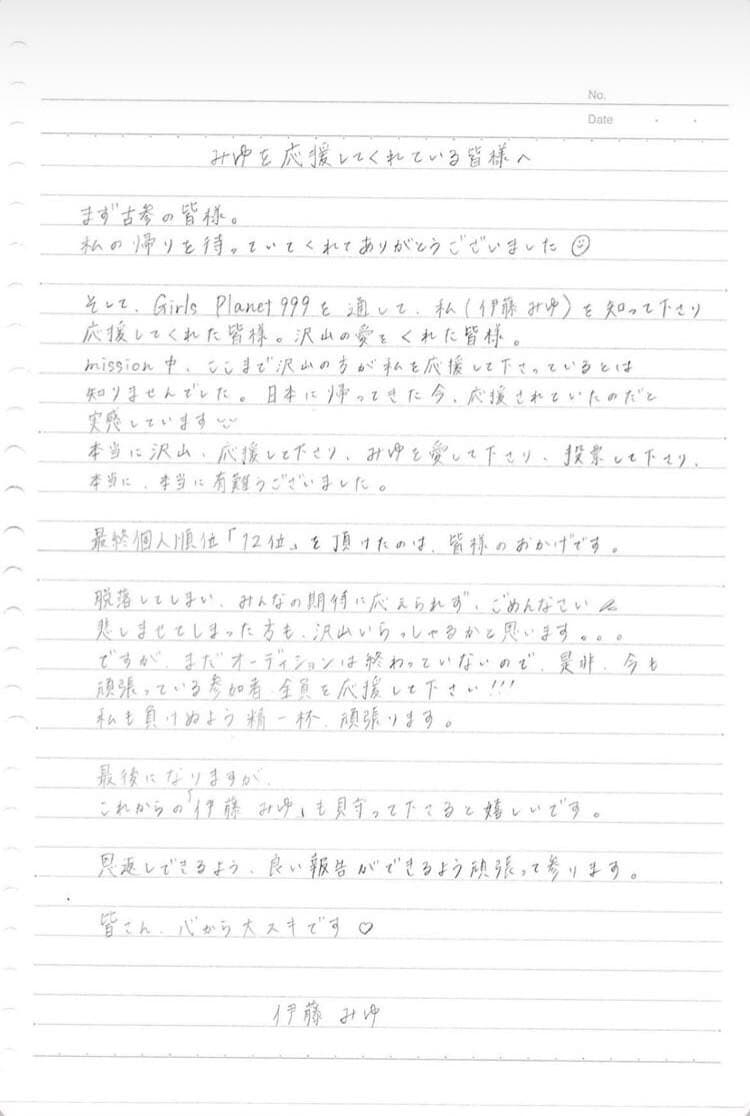 No.
Date
みゆを応援してくれている皆様へ
まず古参の皆様。
私の帰りを待っていてくれてありがとうございました☺
そして、Girls Planet 999を通して、私(伊藤みゆ)を知って下さり
応援してくれた皆様。沢山の愛をくれた皆様。
mission中、ここまで沢山の方が私を応援して下さっているとは
知りませんでした。日本に帰ってきた今、応援されていたのだと
実感しています
本当に沢山、応援して下さり、みゆを愛して下さり、投票して下さり、
本当に、本当に有難うございました。
最終個人順位「12位」を頂けたのは、皆様のおかげです。
脱落してしまい、みんなの期待に応えられず、ごめんなさい
悲しませてしまった方も、沢山いらっしゃるかと思います。。。
ですが、まだオーディションは終わっていないので、是非、今も
頑張っている参加者、全員を応援して下さい!!!
私も負けぬよう精一杯、頑張ります。
最後になりますが、
これからの「伊藤 みゆ」も見守って下さると嬉しいです。
恩返しできるよう、良い報告ができるよう頑張って参ります。
皆さん、心から大スキです♡
伊藤 みゆ